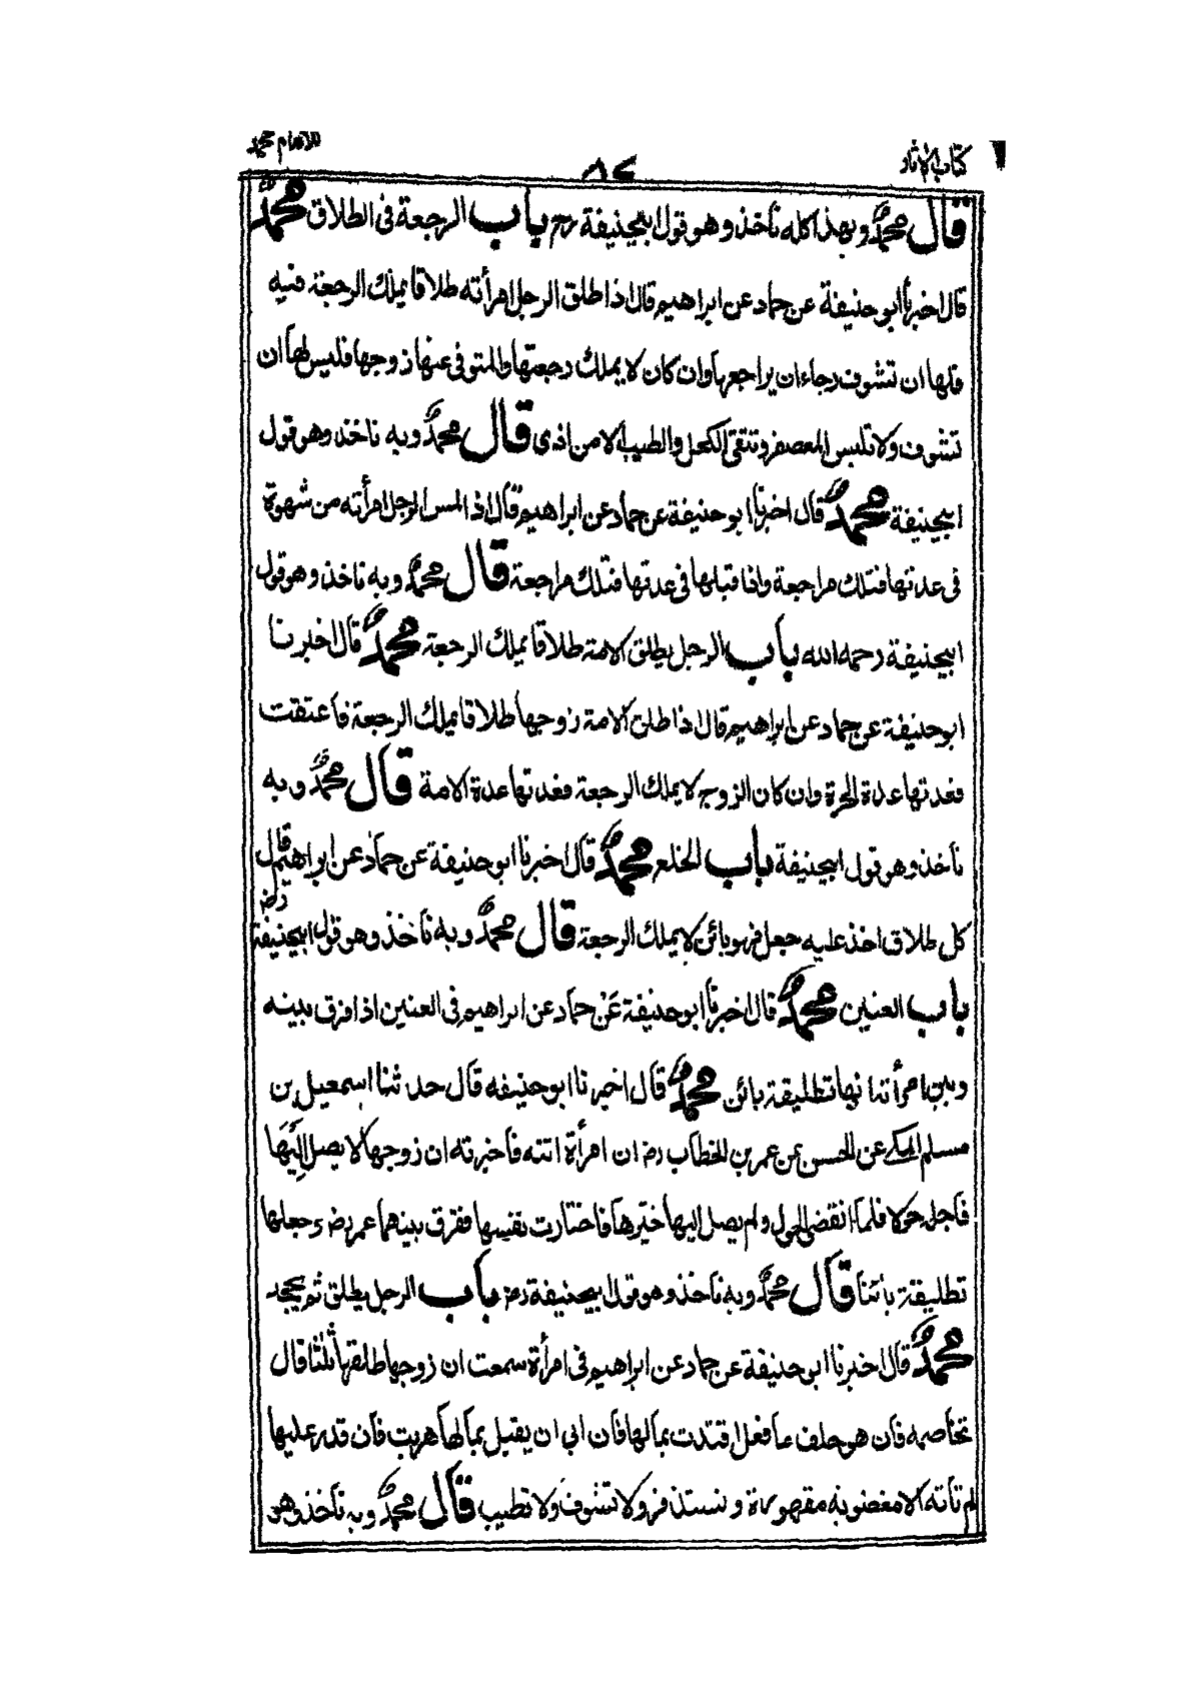 كتاب الآثار
٨٤
للامام محمد
قال محمد وبهذا كله نأخذ وهو قول ابيحنيفة رح باب الرجعة فى الطلاق محمد
قال اخبرنا ابو حنيفة عن حماد عن ابراهيم قال اذا طلق الرجل امرأته طلاقا يملك الرجعة فيه
فلها ان تتشوف رجاء ان يراجعها وان كان لا يملك رجعتها والمتوفى عنها زوجها فليس لها ان
تتشوف ولا تلبس المعصفر وتتقى الكحل والطيب الا من اذى قال محمد وبه ناخذ وهو قول
ابيحنيفة محمد قال اخبرنا ابو حنيفة عن حماد عن ابراهيم قال اذا لمس الرجل امرأته من شهوة
فى عدتها فتلك مراجعة واذا قبلها فى عدتها فتلك مراجعة قال محمد وبه ناخذ وهو قول
ابيحنيفة رحمه الله باب الرجل يطلق الامة طلاقا يملك الرجعة محمد قال اخبرنا
ابو حنيفة عن حماد عن ابراهيم قال اذا طلق الامة زوجها طلاقا يملك الرجعة فاعتقت
فعدتها عدة الحرة وان كان الزوج لا يملك الرجعة فعدتها عدة الامة قال محمد وبه
نأخذ وهو قول ابيحنيفة باب الخلع محمد قال اخبرنا ابو حنيفة عن حماد عن ابراهيم قال
كل طلاق اخذ عليه جعل فهو بائن لا يملك الرجعة قال محمد وبه نأخذ وهو قول ابيحنيفة رض
باب العنين محمد قال اخبرنا ابو حنيفة عن حماد عن ابراهيم فى العنين اذا فرق بينه
وبين امرأته انها تطليقة بائن محمد قال اخبرنا ابو حنيفه قال حدثنا اسمعيل بن
مسلم المكي عن الحسن عن عمر بن الخطاب رض ان امرأة اتته فأخبرته ان زوجها لا يصل اليها
فأجله حولا فلما انقضى الحول ولم يصل اليها خيرها فاختارت نفسها ففرق بينهما عمر رض وجعلها
تطليقة بائنا قال محمد وبه نأخذ وهو قول ابيحنيفة رض باب الرجل يطلق ثم يجحد
محمد قال اخبرنا ابو حنيفة عن حماد عن ابراهيم فى امرأة سمعت ان زوجها طلقها ثلثا قال
تخاصمه فان هو حلف ما فعل افتدت بمالها فان ابى ان يقبل بمالها هربت فان قدر عليها
لم تأته الا مغضوبة مقهورة وتستذفر ولا تتشوف ولا تطيب قال محمد وبه نأخذ وهو